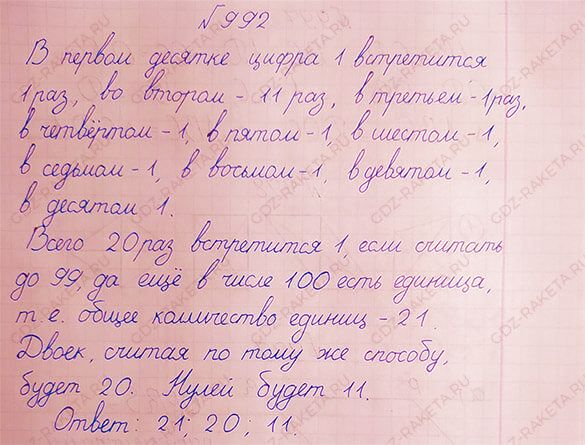 №992
В первом десятке цифра 1 встретится
1 раз, во втором - 11 раз, в третьем - 1 раз,
в четвёртом - 1, в пятом - 1, в шестом - 1,
в седьмом - 1, в восьмом - 1, в девятом - 1,
в десятом 1.
Всего 20 раз встретится 1, если считать
до 99, да ещё в числе 100 есть единица,
т.е. общее колличество единиц - 21.
Двоек, считая по тому же способу,
будет 20. Нулей будет 11.
Ответ: 21; 20; 11.
GDZ-RAKETA.RU